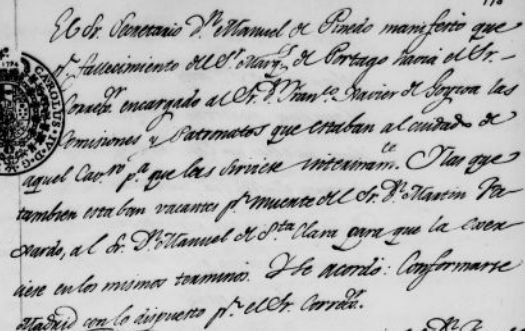 El Sr. Secretario Dn. Manuel de Pinedo manifestó que
pr. fallecimiento del Sr. Marqs. de Portago havia el Sr.
Corregr. encargado al Sr. Dn. Franco. Xavier de Goyzoa las
Comisiones y Patronatos que estaban al cuidado de
aquel Cavro. pa. que las sirviese interinamte. Y las que
tambien estaban vacantes pr. muerte del Sr. Dn. Martin
al Sr. Dn. Manuel de Sta. Clara para que la exer-
ciese en los mismos terminos. Y se acordó: Conformarse
Madrid con lo dispuesto pr. el Sr. Corregr.
CAROLUS IV D G